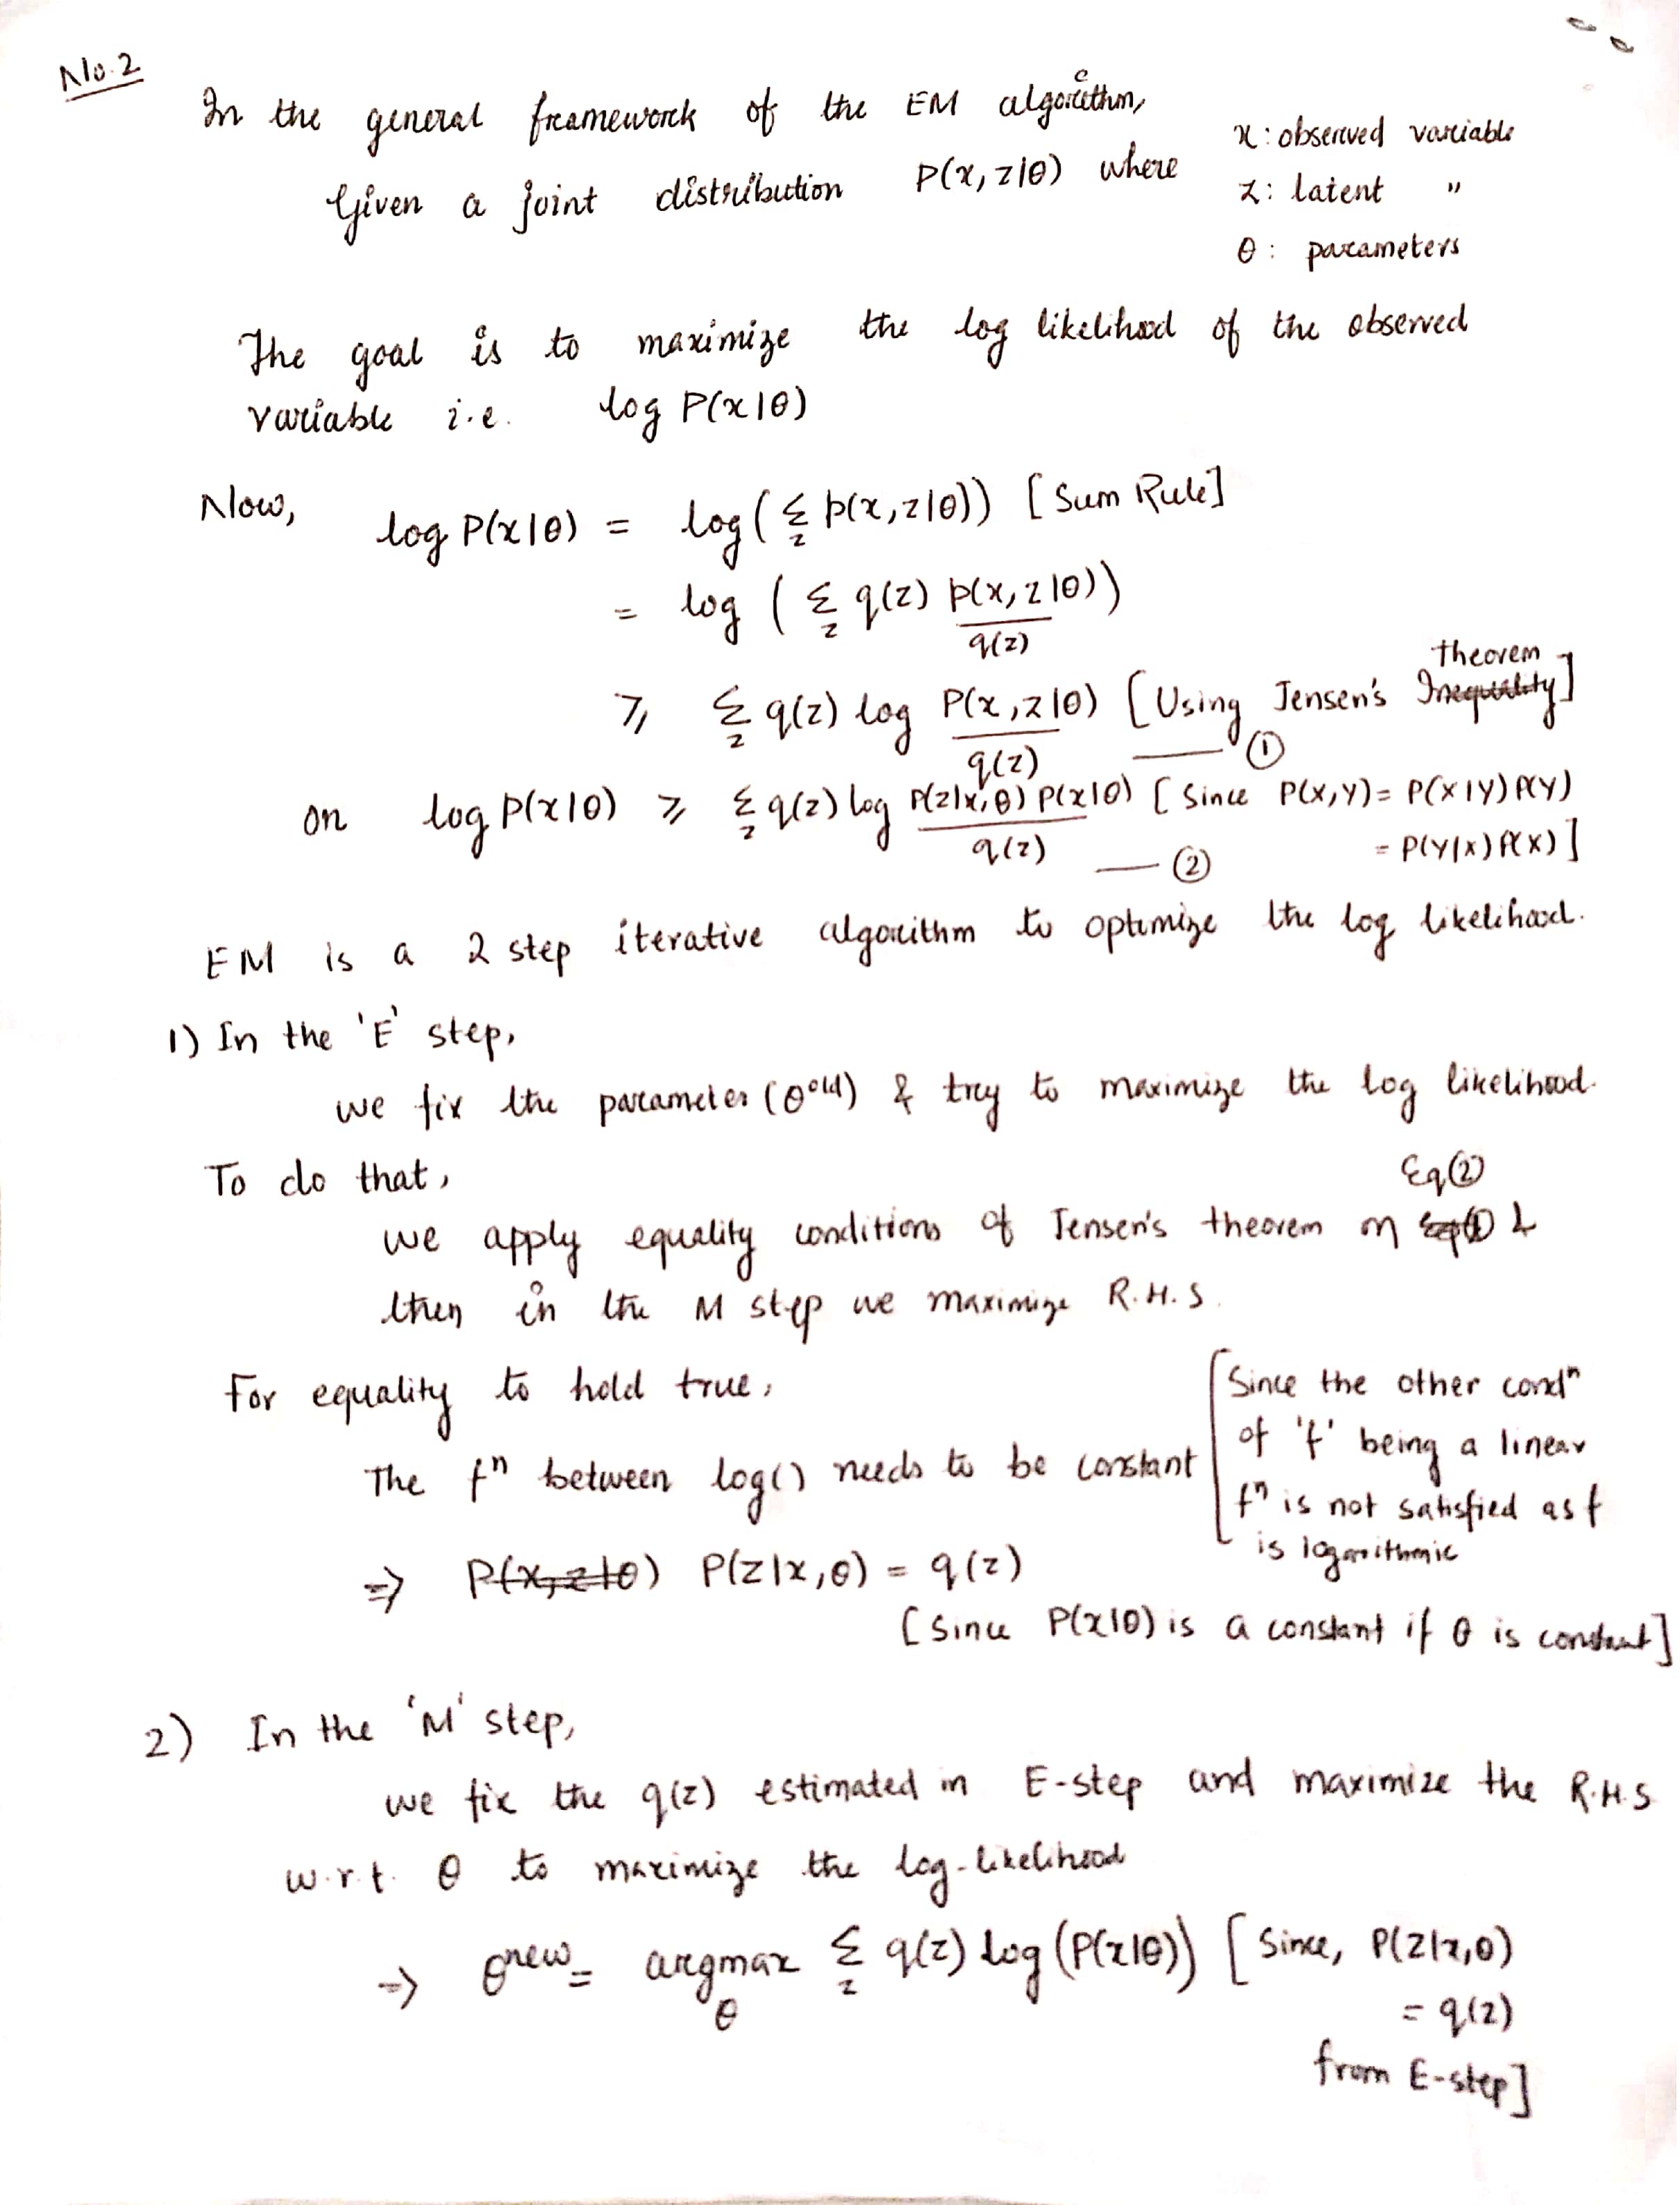 No. 2
In the general framework of the EM algorithm,
Given a joint distribution P(x, z|θ) where
x : observed variable
z : latent "
θ : parameters
The goal is to maximize the log likelihood of the observed
variable i.e. log P(x|θ)
Now, log P(x|θ) = log(Σ_z p(x,z|θ)) [Sum Rule]
= log (Σ_z q(z) p(x,z|θ)/q(z))
⩾ Σ_z q(z) log P(x,z|θ)/q(z) [Using Jensen's theorem] —— ①
on log P(x|θ) ⩾ Σ_z q(z) log P(z|x,θ) P(x|θ)/q(z) [Since P(X,Y) = P(X|Y)P(Y)
— ② = P(Y|X)P(X)]
EM is a 2 step iterative algorithm to optimize the log likelihood.
1) In the 'E' step,
we fix the parameter (θ^old) & try to maximize the log likelihood.
To do that,
we apply equality conditions of Jensen's theorem on Eq② &
then in the M step we maximize R.H.S.
For equality to hold true,
The fⁿ between log() needs to be constant
[Since the other condⁿ
of 'f' being a linear
fⁿ is not satisfied as f
is logarithmic
⇒ P(x,z|θ) P(z|x,θ) = q(z)
[Since P(x|θ) is a constant if θ is constant]
2) In the 'M' step,
we fix the q(z) estimated in E-step and maximize the R.H.S
w.r.t. θ to maximize the log-likelihood
⇒ θ^new = argmax_θ Σ_z q(z) log (P(x|θ)) [Since, P(z|x,θ)
= q(z)
from E-step]